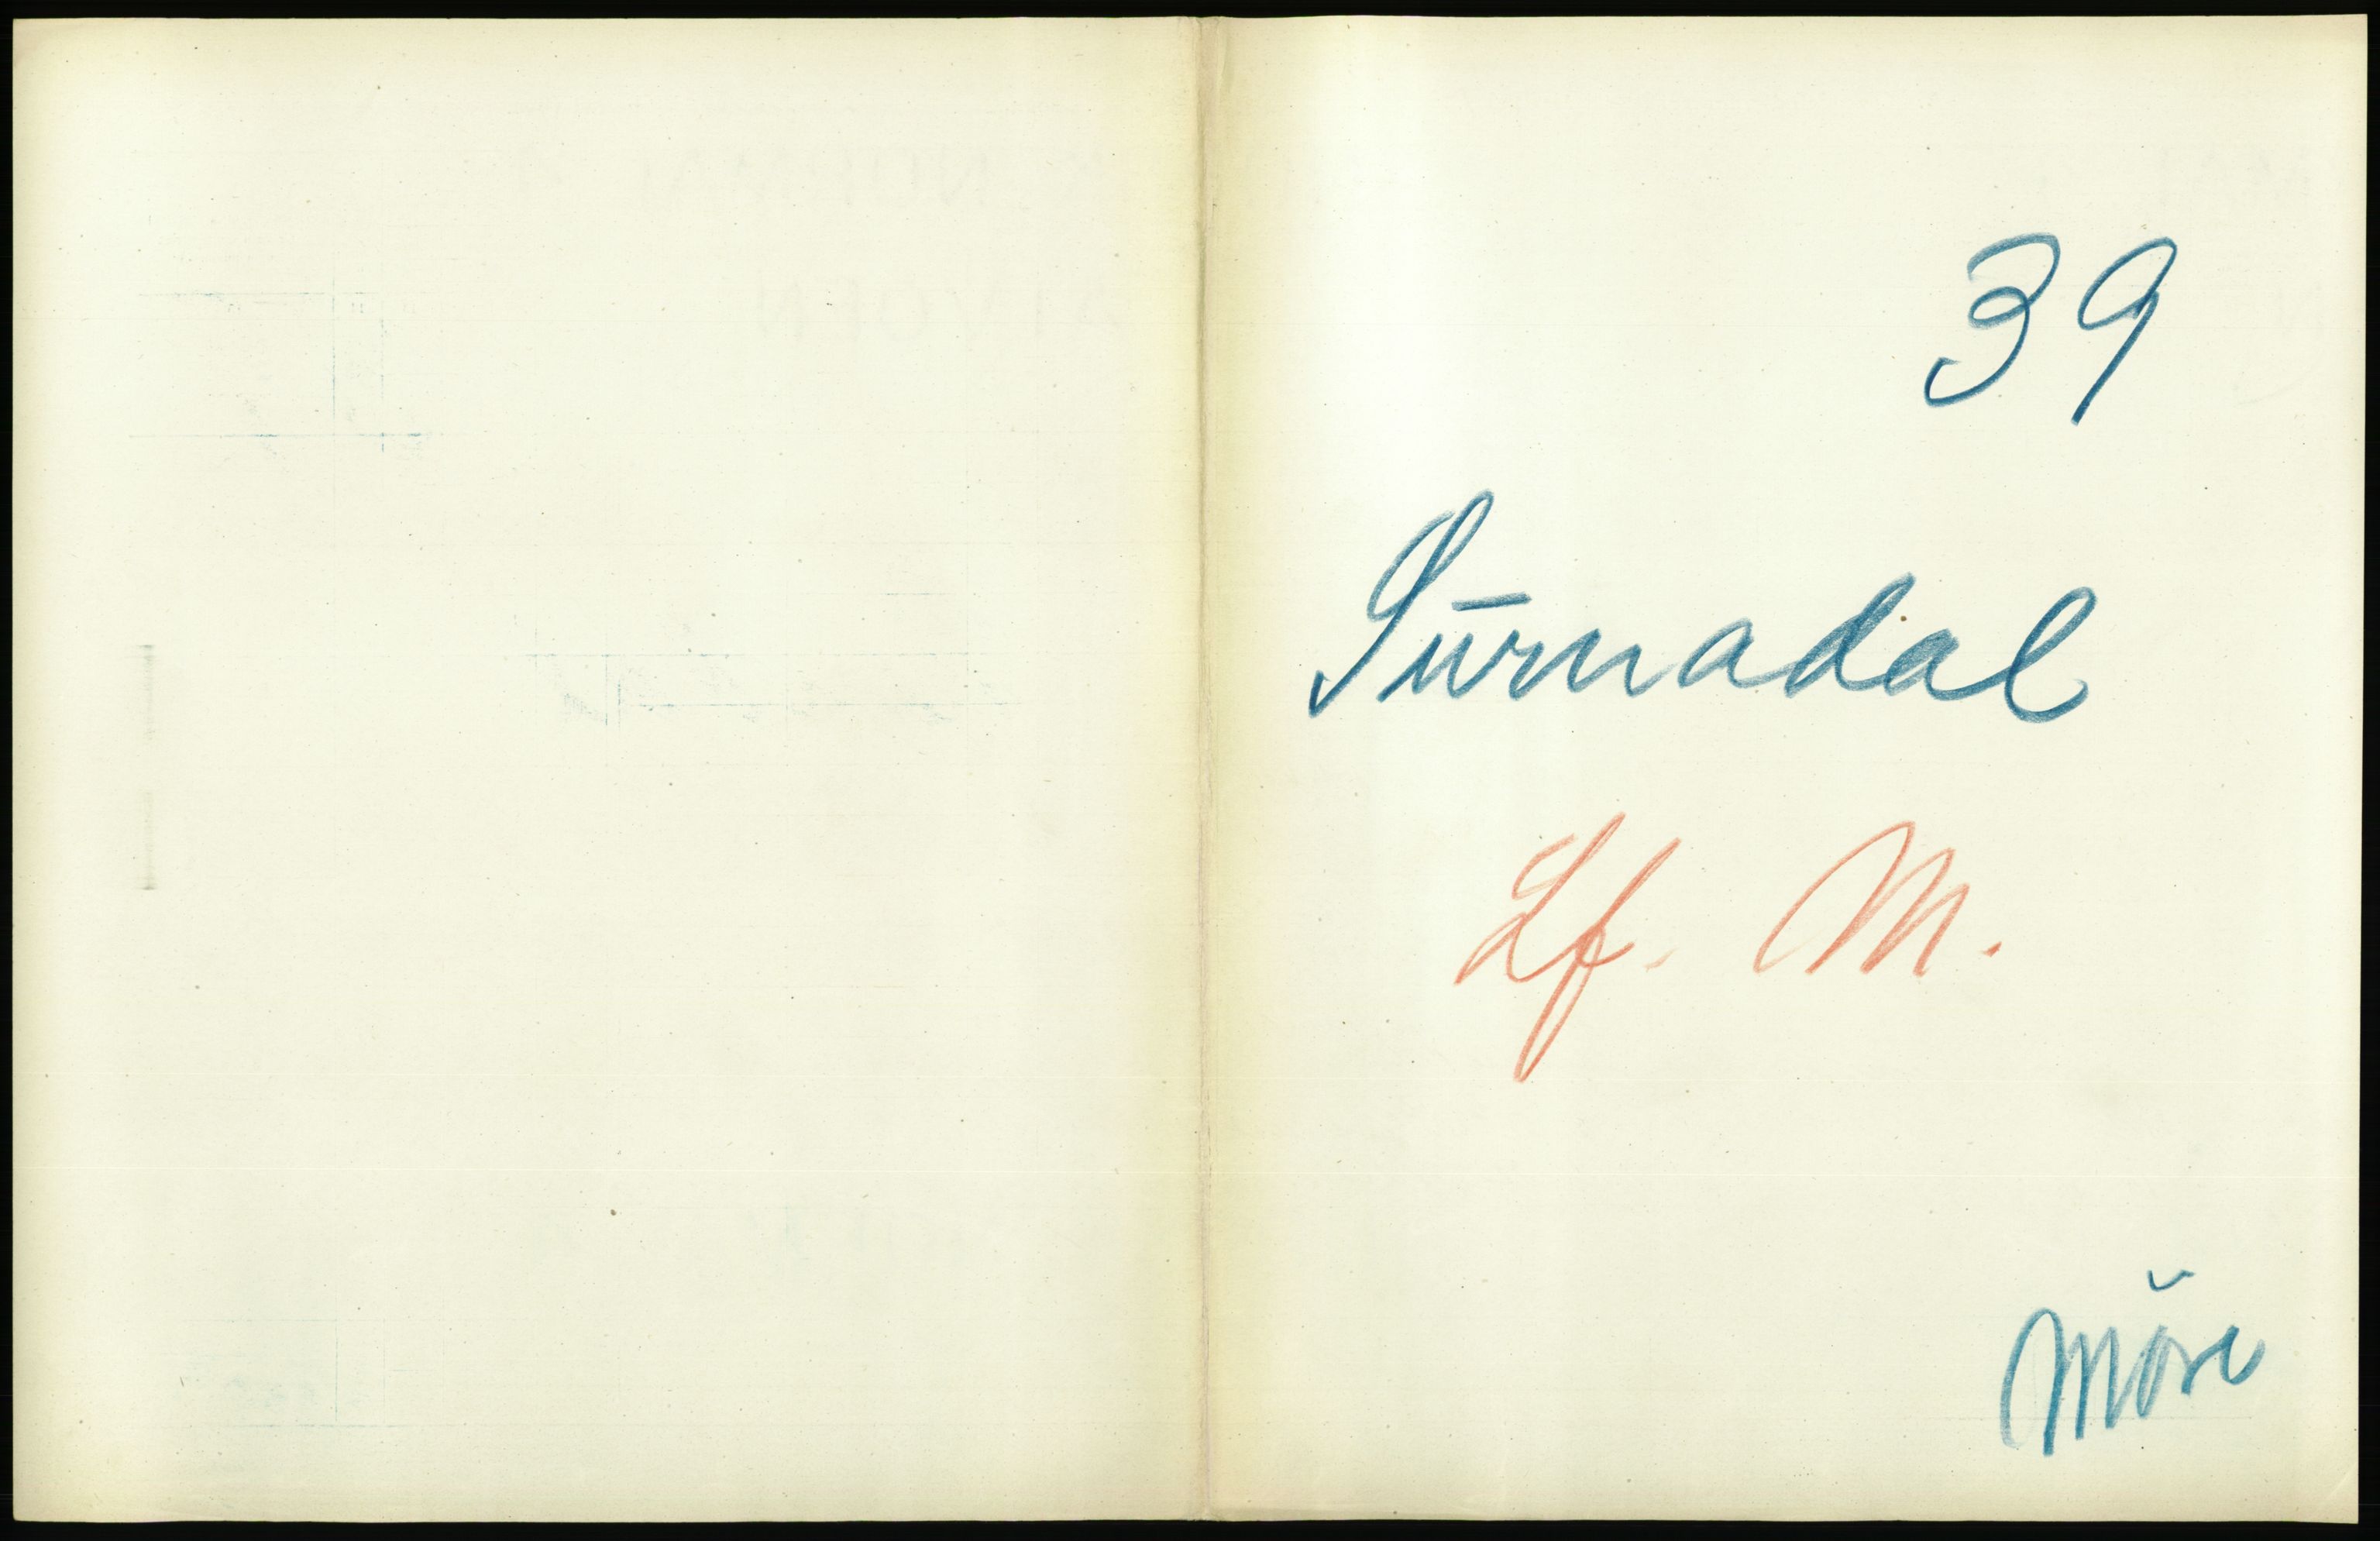 39
Surnadal
Lf. M.
Möre